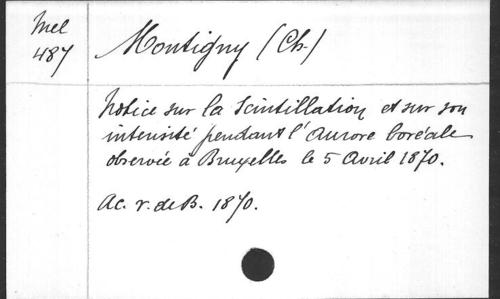 Mel
487
Montigny (Ch.)
Notice sur la Scintillation et sur son
intensité pendant l'aurore boréale
observée à Bruxelles le 5 Avril 1870.
Ac. r. de B. 1870.